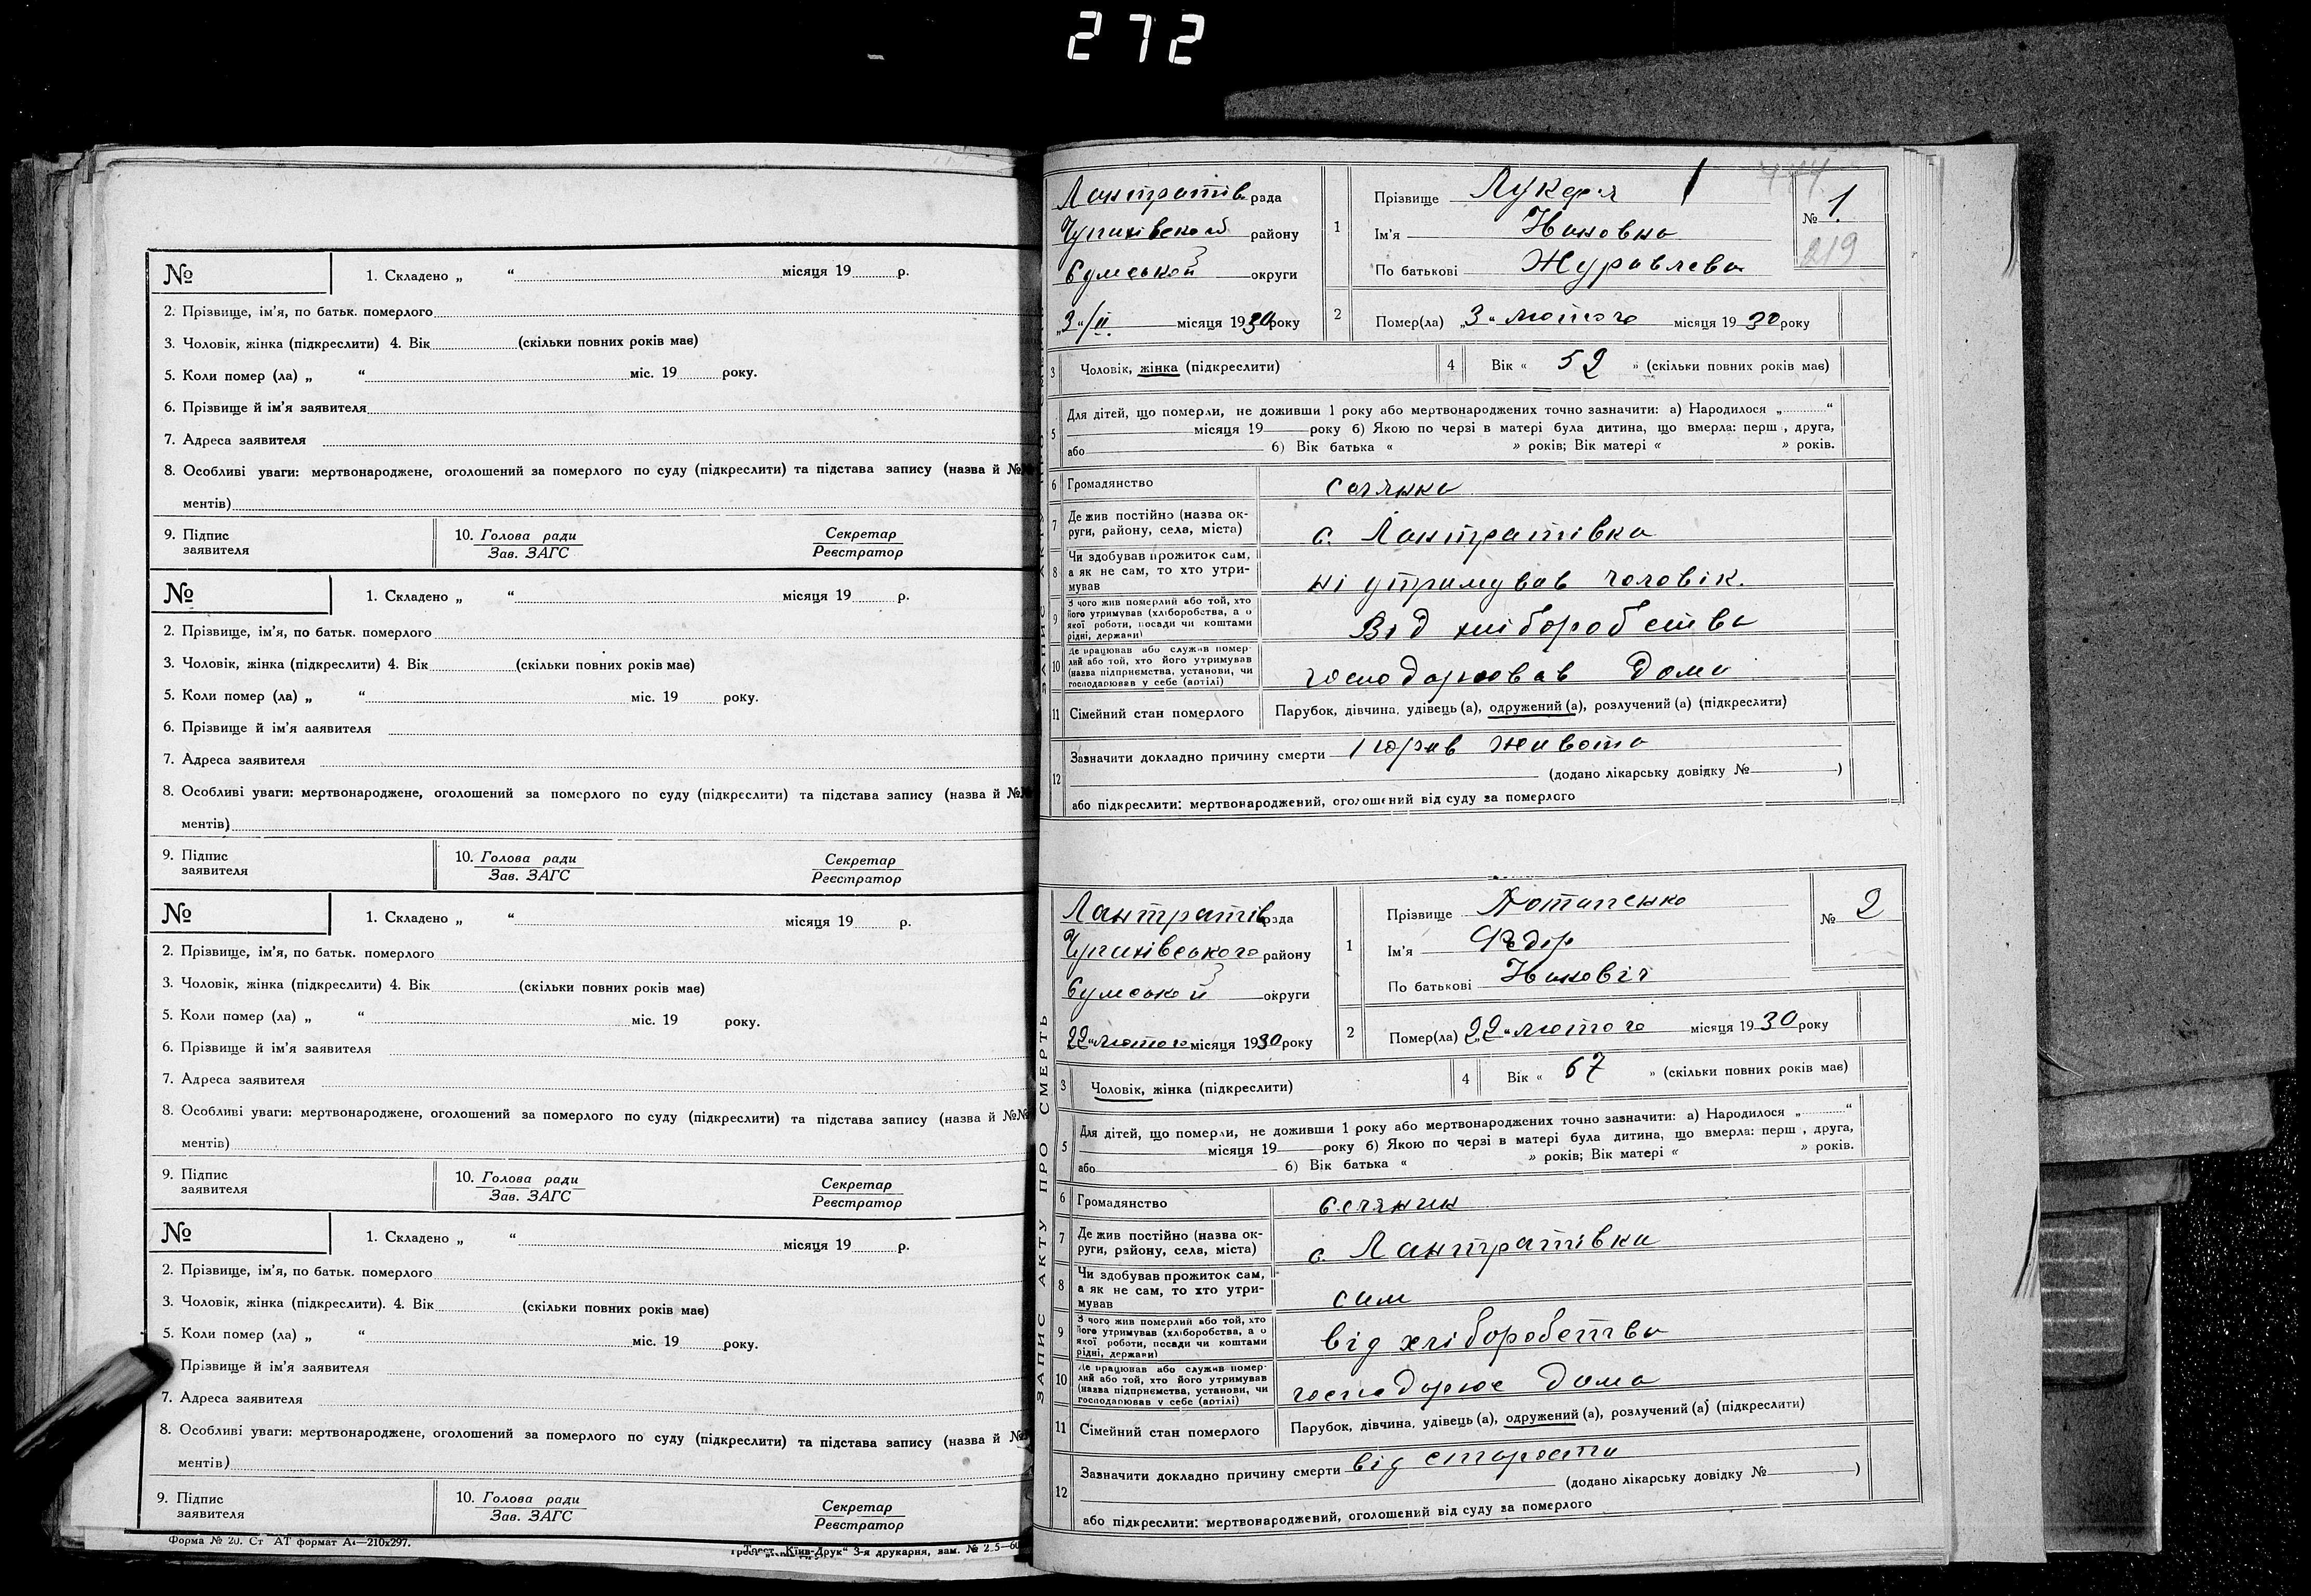 272
№ 1. Складено „ “ місяця 19 р.
2. Прізвище, ім'я, по батьк. померлого
3. Чоловік, жінка (підкреслити) 4. Вік (скільки повних років має)
5. Коли помер (ла) „ “ міс. 19 року.
6. Прізвище й ім'я заявителя
7. Адреса заявителя
8. Особливі уваги: мертвонароджене, оголошений за померлого по суду (підкреслити) та підстава запису (назва й №№
ментів)
9. Підпис заявителя 10. Голова ради Зав. ЗАГС Секретар Реєстратор
№ 1. Складено „ “ місяця 19 р.
2. Прізвище, ім'я, по батьк. померлого
3. Чоловік, жінка (підкреслити) 4. Вік (скільки повних років має)
5. Коли помер (ла) „ “ міс. 19 року.
6. Прізвище й ім'я ааявителя
7. Адреса заявителя
8. Особливі уваги: мертвонароджене, оголошений за померлого по суду (підкреслити) та підстава запису (назва й №№
ментів)
9. Підпис заявителя 10. Голова ради Зав. ЗАГС Секретар Реєстратор
№ 1. Складено „ “ місяця 19 р.
2. Прізвище, ім'я, по батьк. померлого
3. Чоловік, жінка (підкреслити) 4. Вік (скільки повних років має)
5. Коли помер (ла) „ “ міс. 19 року.
6. Прізвище й ім'я заявителя
7. Адреса заявителя
8. Особливі уваги: мертвонароджене, оголошений за померлого по суду (підкреслити) та підстава запису (назва й №№
ментів)
9. Підпис заявителя 10. Голова ради Зав. ЗАГС Секретар Реєстратор
№ 1. Складено „ “ місяця 19 р.
2. Прізвище, ім'я, по батьк. померлого
3. Чоловік, жінка (підкреслити). 4. Вік (скільки повних років має)
5. Коли помер (ла) „ “ міс. 19 року.
Прізвище й ім'я заявителя
7. Адреса заявителя
8. Особливі уваги: мертвонароджене, оголошений за померлого по суду (підкреслити) та підстава запису (назва й №
ментів)
9. Підпис заявителя 10. Голова ради Зав. ЗАГС Секретар Реєстратор
Форма № 20. Ст АТ формат А4—210х297.
Трест „Київ-Друк“ 3-я друкарня, зам. №
ЗАПИС АКТУ
Лантратів рада
Чупахівской району
Сумськой округи
„3“/II місяця 1930 року
1 Прізвище Лукеря
Ім'я Ивановна
По батькові Журавлева
№ 1.
219
2 Помер(ла) „3“ лютого місяця 1930 року
3 Чоловік, жінка (підкреслити) 4 Вік « 52 » (скільки повних років має)
5 Для дітей, що померли, не доживши 1 року або мертвонароджених точно зазначити: а) Народилося „ “
місяця 19 року б) Якою по черзі в матері була дитина, що вмерла: перш , друга,
або б) Вік батька « » років; Вік матері « » років.
6 Громадянство селянка
7 Де жив постійно (назва округи, району, села, міста) с. Лантратівка
8 Чи здобував прожиток сам, а як не сам, то хто утримував ні утримував чоловік.
9 З чого жив померлий або той, хто його утримував (хліборобства, а о якої роботи, посади чи коштами рідні, держави) Від хліборобства
10 Де працював або служив померлий або той, хто його утримував (назва підприємства, установи, чи господарював у себе (артілі) господарював дома
11 Сімейний стан померлого Парубок, дівчина, удівець (а), одружений (а), розлучений (а) (підкреслити)
12 Зазначити докладно причину смерти порив живота
(додано лікарську довідку № )
або підкреслити: мертвонароджений, оголошений від суду за померлого
ЗАПИС АКТУ ПРО СМЕРТЬ
Лантратів рада
Чупахівського району
Сумськой округи
22“ лютого місяця 1930 року
1 Прізвище Потапенко
Ім'я Федір
По батькові Иванович
№ 2
2 Помер(ла) „22“ лютого місяця 1930 року
3 Чоловік, жінка (підкреслити) 4 Вік « 67 » (скільки повних років має)
5 Для дітей, що померли, не доживши 1 року або мертвонароджених точно зазначити: а) Народилося „ “
місяця 19 року б) Якою по черзі в матері була дитина, що вмерла: перш , друга,
або б) Вік батька « » років; Вік матері « » років.
6 Громадянство селянин
7 Де жив постійно (назва округи, району, села, міста) с. Лантратівки
8 Чи здобував прожиток сам, а як не сам, то хто утримував сам
9 З чого жив померлий або той, хто його утримував (хліборобства, а о якої роботи, посади чи коштами рідні, держави) від хліборобства
10 Де працював або служив померлий або той, хто його утримував (назва підприємства, установи, чи господарював у себе (артілі) господарює дома
11 Сімейний стан померлого Парубок, дівчина, удівець (а), одружений (а), розлучений (а) (підкреслити)
12 Зазначити докладно причину смерти від старости
(додано лікарську довідку № )
або підкреслити: мертвонароджений, оголошений від суду за померлого